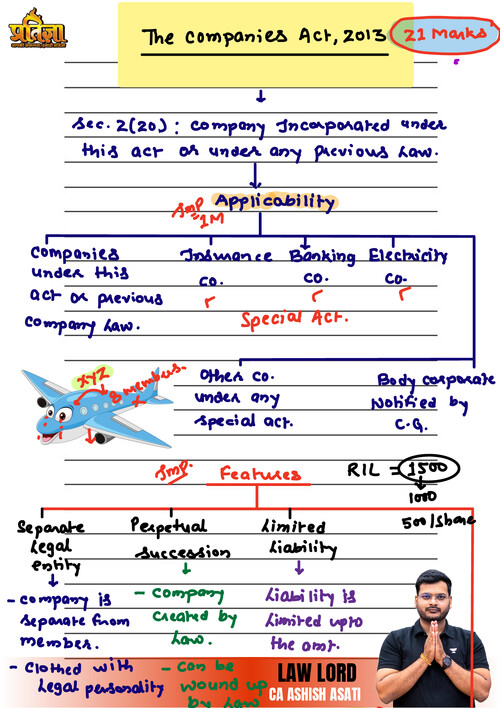 प्रतिज्ञा
The Companies Act, 2013
21 Marks
Sec. 2(20) : Company Incorporated under
this act or under any previous Law.
Imp
1M
Applicability
Companies
under this
act or previous
Company Law.
Insurance
Co.
Banking
Co.
Electricity
Co.
Special Act.
XYZ
8 members.
Other Co.
under any
special act.
Body corporate
Notified by
C.G.
Imp.
Features
RIL = 1500
1000
500/share
Separate
Legal
entity
Perpetual
succession
Limited
Liability
- Company is
separate from
member.
- Clothed with
Legal personality
- Company
created by
Law.
- Can be
wound up
by Law
Liability is
Limited upto
the amt.
LAW LORD
CA ASHISH ASATI